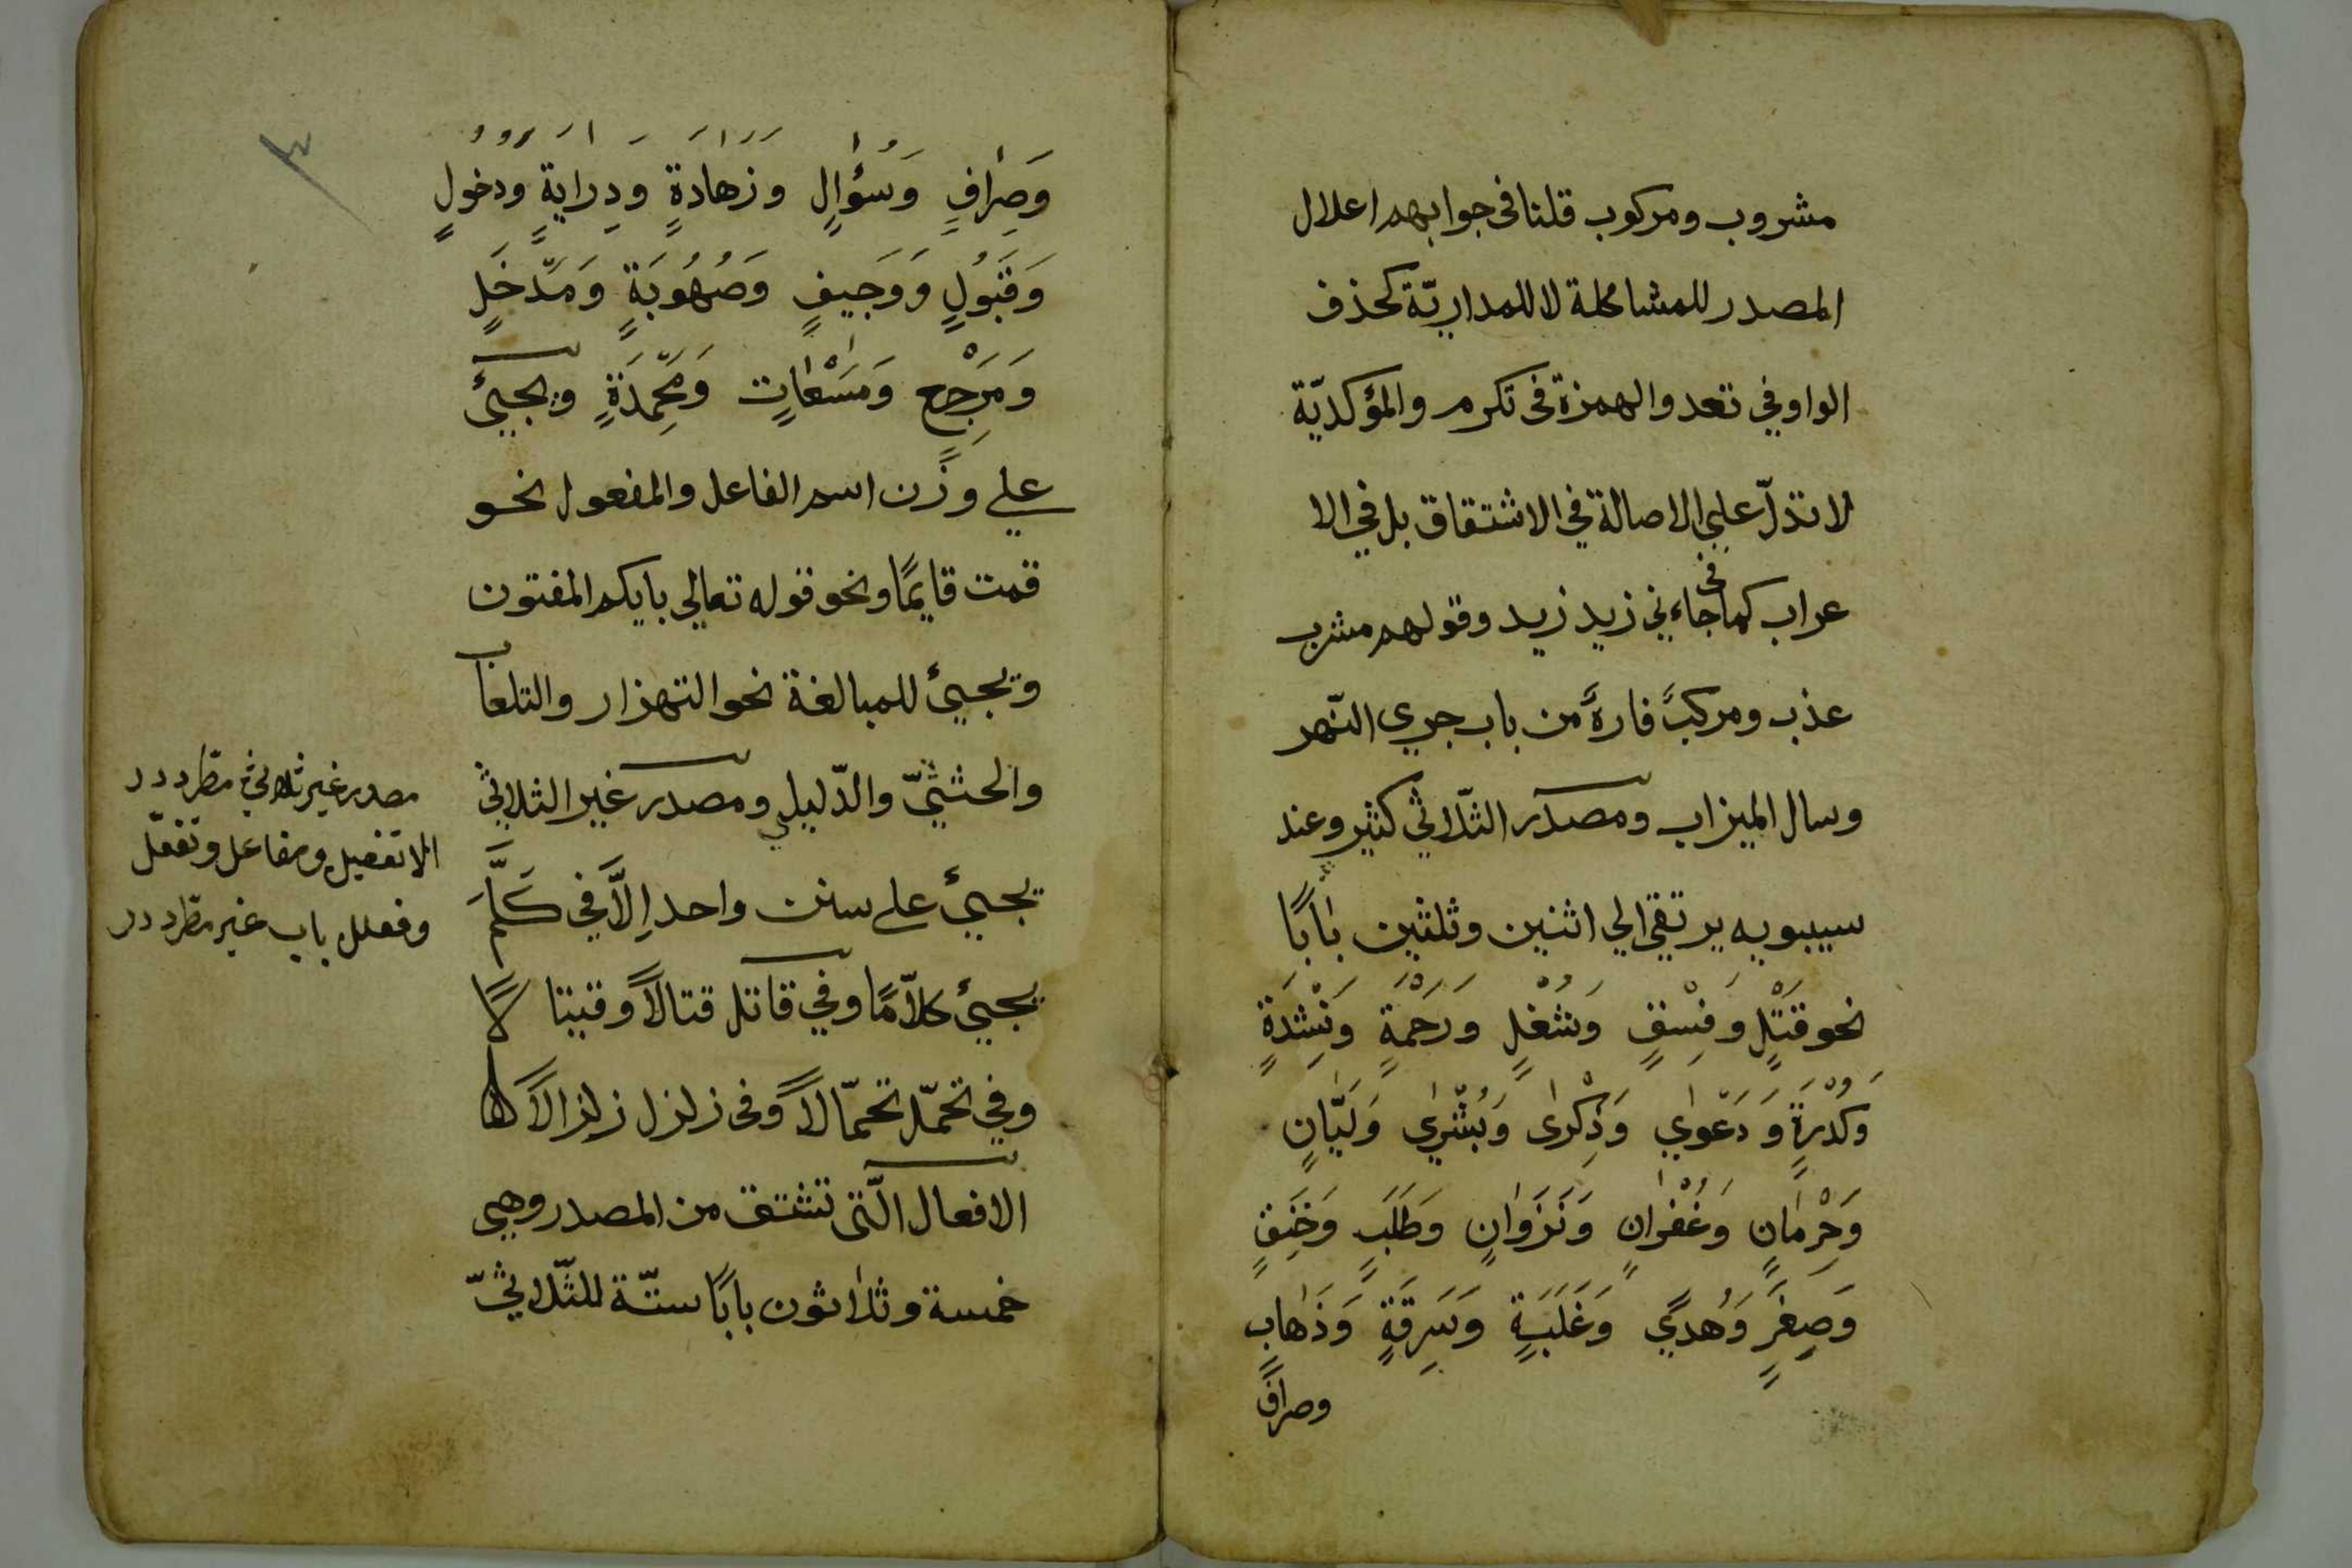 مشروب ومركوب قلنا فى جوابهم اعلال
المصدر للمشاكلة لا للمداريّة كحذف
الواو في تعد والهمزة فى تكرم والمؤكديّة
لا تدلّ علي الاصالة في الاشتقاق بل في الا
عراب كما فى جاءني زيد زيد وقولهم مشرب
عذب ومركبً فارهً من باب جري النّهر
وسال الميزاب ومصدر الثّلاثي كثير وعند
سيبويه يرتقي الي اثنين وثلثين بابًا
نحو قَتْلٍ وَفِسْقٍ وَشُغْلٍ وَرَحْمَةٍ وَنِشْدَةٍ
وَكُدْرَةٍ وَدَعْوٰي وَذِكْرٰى وَبُشْرٰي وَلَيَّانٍ
وَحِرْمَانٍ وَغُفْرٰانٍ وَنَزَوَانٍ وَطَلَبٍ وَخَنِقٍ
وَصِغَرٍ وَهُدًي وَغَلَبَةٍ وَسَرِقَةٍ وَذَهَابٍ
وصرافٍ
٣
وَصِرٰافٍ وَسُؤٰالٍ وَزَهٰادَةٍ وَدِرٰايَةٍ وَدُخُولٍ
وَقَبُولٍ وَوَجِيفٍ وَصُهُوبَةٍ وَمَدْخَلٍ
وَمَرْجِعٍ وَمَسْعٰاتٍ وَمَحْمِدَةٍ ويجيئ
علي وزن اسم الفاعل والمفعول نحو
قمت قايمًا ونحو قوله تعالي بايكم المفتون
ويجيئ للمبالغة نحو التهزار والتلعاب
والحثيثيّ والدّليلي ومصدر غير الثلاثي
يجيئ على سنن واحد اِلاَّ في كَلَّمَ
يجيئ كلاّمًا وفي قاتل قتالاً وقيتا لاً
وفي تحمّل تحمّالاً وفى زلزل زلزالاً
الافعال الّتى تشتق من المصدر وهي
خمسة وثلاثون بابًا ستّة للثّلاثيّ
مصدر غير ثلاثي مطرددر
الا تفعيل ومفاعل وتفعّل
وفعلل باب غير مطرددر